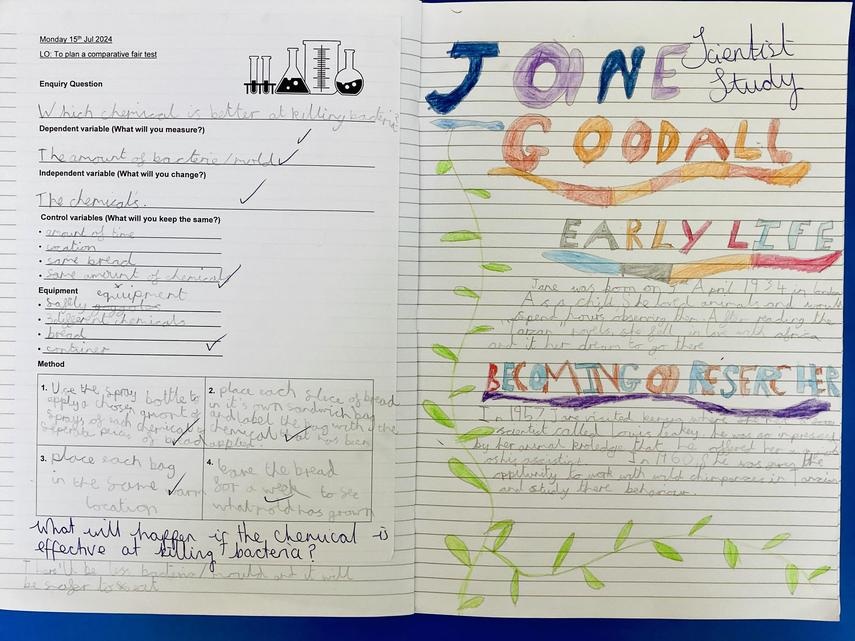 Monday 15th Jul 2024
LO: To plan a comparative fair test
Enquiry Question
Which chemical is better at killing bacteria?
Dependent variable (What will you measure?)
The amount of bacteria/mold
Independent variable (What will you change?)
The chemicals.
Control variables (What will you keep the same?)
• amount of time
• location
• same bread
• same amount of chemicals
Equipment
equipment
• Safety
• 3 different chemicals
• bread
• container
Method
1. Use the spray bottle to
apply a chosen amount of
sprays of each chemical to
seperate pieces of bread
2. place each slice of bread
in it's own sandwich bag
and label the bag with the
chemical that has been
applied.
3. place each bag
in the same warm
location
4. leave the bread
for a week to see
what mold has grown
What will happen if the chemical is
effective at killing bacteria?
There'll be less bacteria/mould and it will
be safer to eat
JANE
Scientist
Study
GOODALL
EARLY LIFE
Jane was born on 3rd April 1934 in London
As a child she loved animals and would
spend hours observing them. After reading the
"Tarzan" novels, she fell in love with africa
and it her dream to go there
BECOMING A RESEARCHER
In 1957 Jane visited kenya where she
scientist called Louis Leakey. he was so impressed
by her animal knoledge that he offered her a
In 1960, she was given the
oppitunity to work with wild chimpanzees in Tanzania
and study there behaviour.